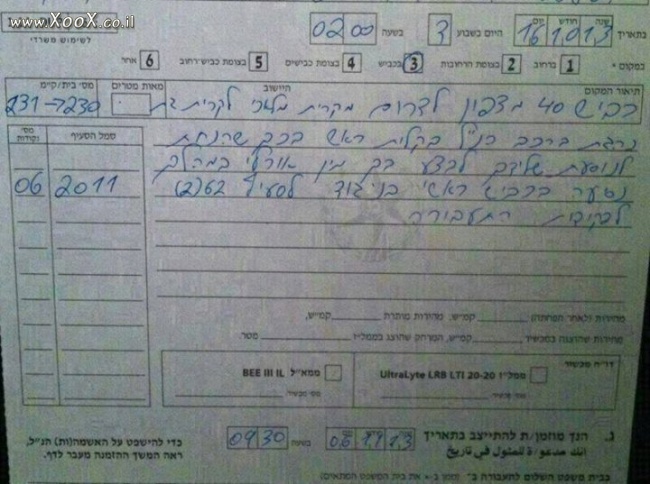 www.XooX.co.il
לשימוש משרדי
בתאריך שנה חודש יום 16 10 13 היום בשבוע 3 בשעה 02 00
במקום * 1 ברחוב 2 בצומת הרחובות 3 בכביש 4 בצומת כבישים 5 בצומת כביש-רחוב 6 אחר
תיאור המקום היישוב מאות מטרים מס' בית/ק"מ
כביש 40 מצפון לדרום מקרית מלאכי לקרית גת 230 → 231
מס' נקודות סמל הסעיף
נהגת ברכב הנ"ל בקלות ראש בכך שהנחת
לנוסעת שלידך לבצע בך מין אורלי במהלך
06 2011 נסיעה בכביש ראשי בניגוד לסעיף 62(2)
לפקודת התעבורה
מהירות (לאחר הפחתה) קמ"ש, מהירות מותרת קמ"ש,
מהירות שהוצגה במכשיר קמ"ש, המרחק שהוצג בממל"ז מטר.
דו"ח מכשיר ממל"ז UltraLyte LRB LTI 20-20 ממא"ל BEE III IL
מס' מכשיר מס' מכשיר
ג. הנך מוזמן/ת להתייצב בתאריך 06 11 13 בשעה 09 30 כדי להישפט על האשמה(ות) הנ"ל,
אנכ מדעוה للמثול في تاريخ ראה המשך ההזמנה מעבר לדף.
בבית משפט השלום לתעבורה ב־